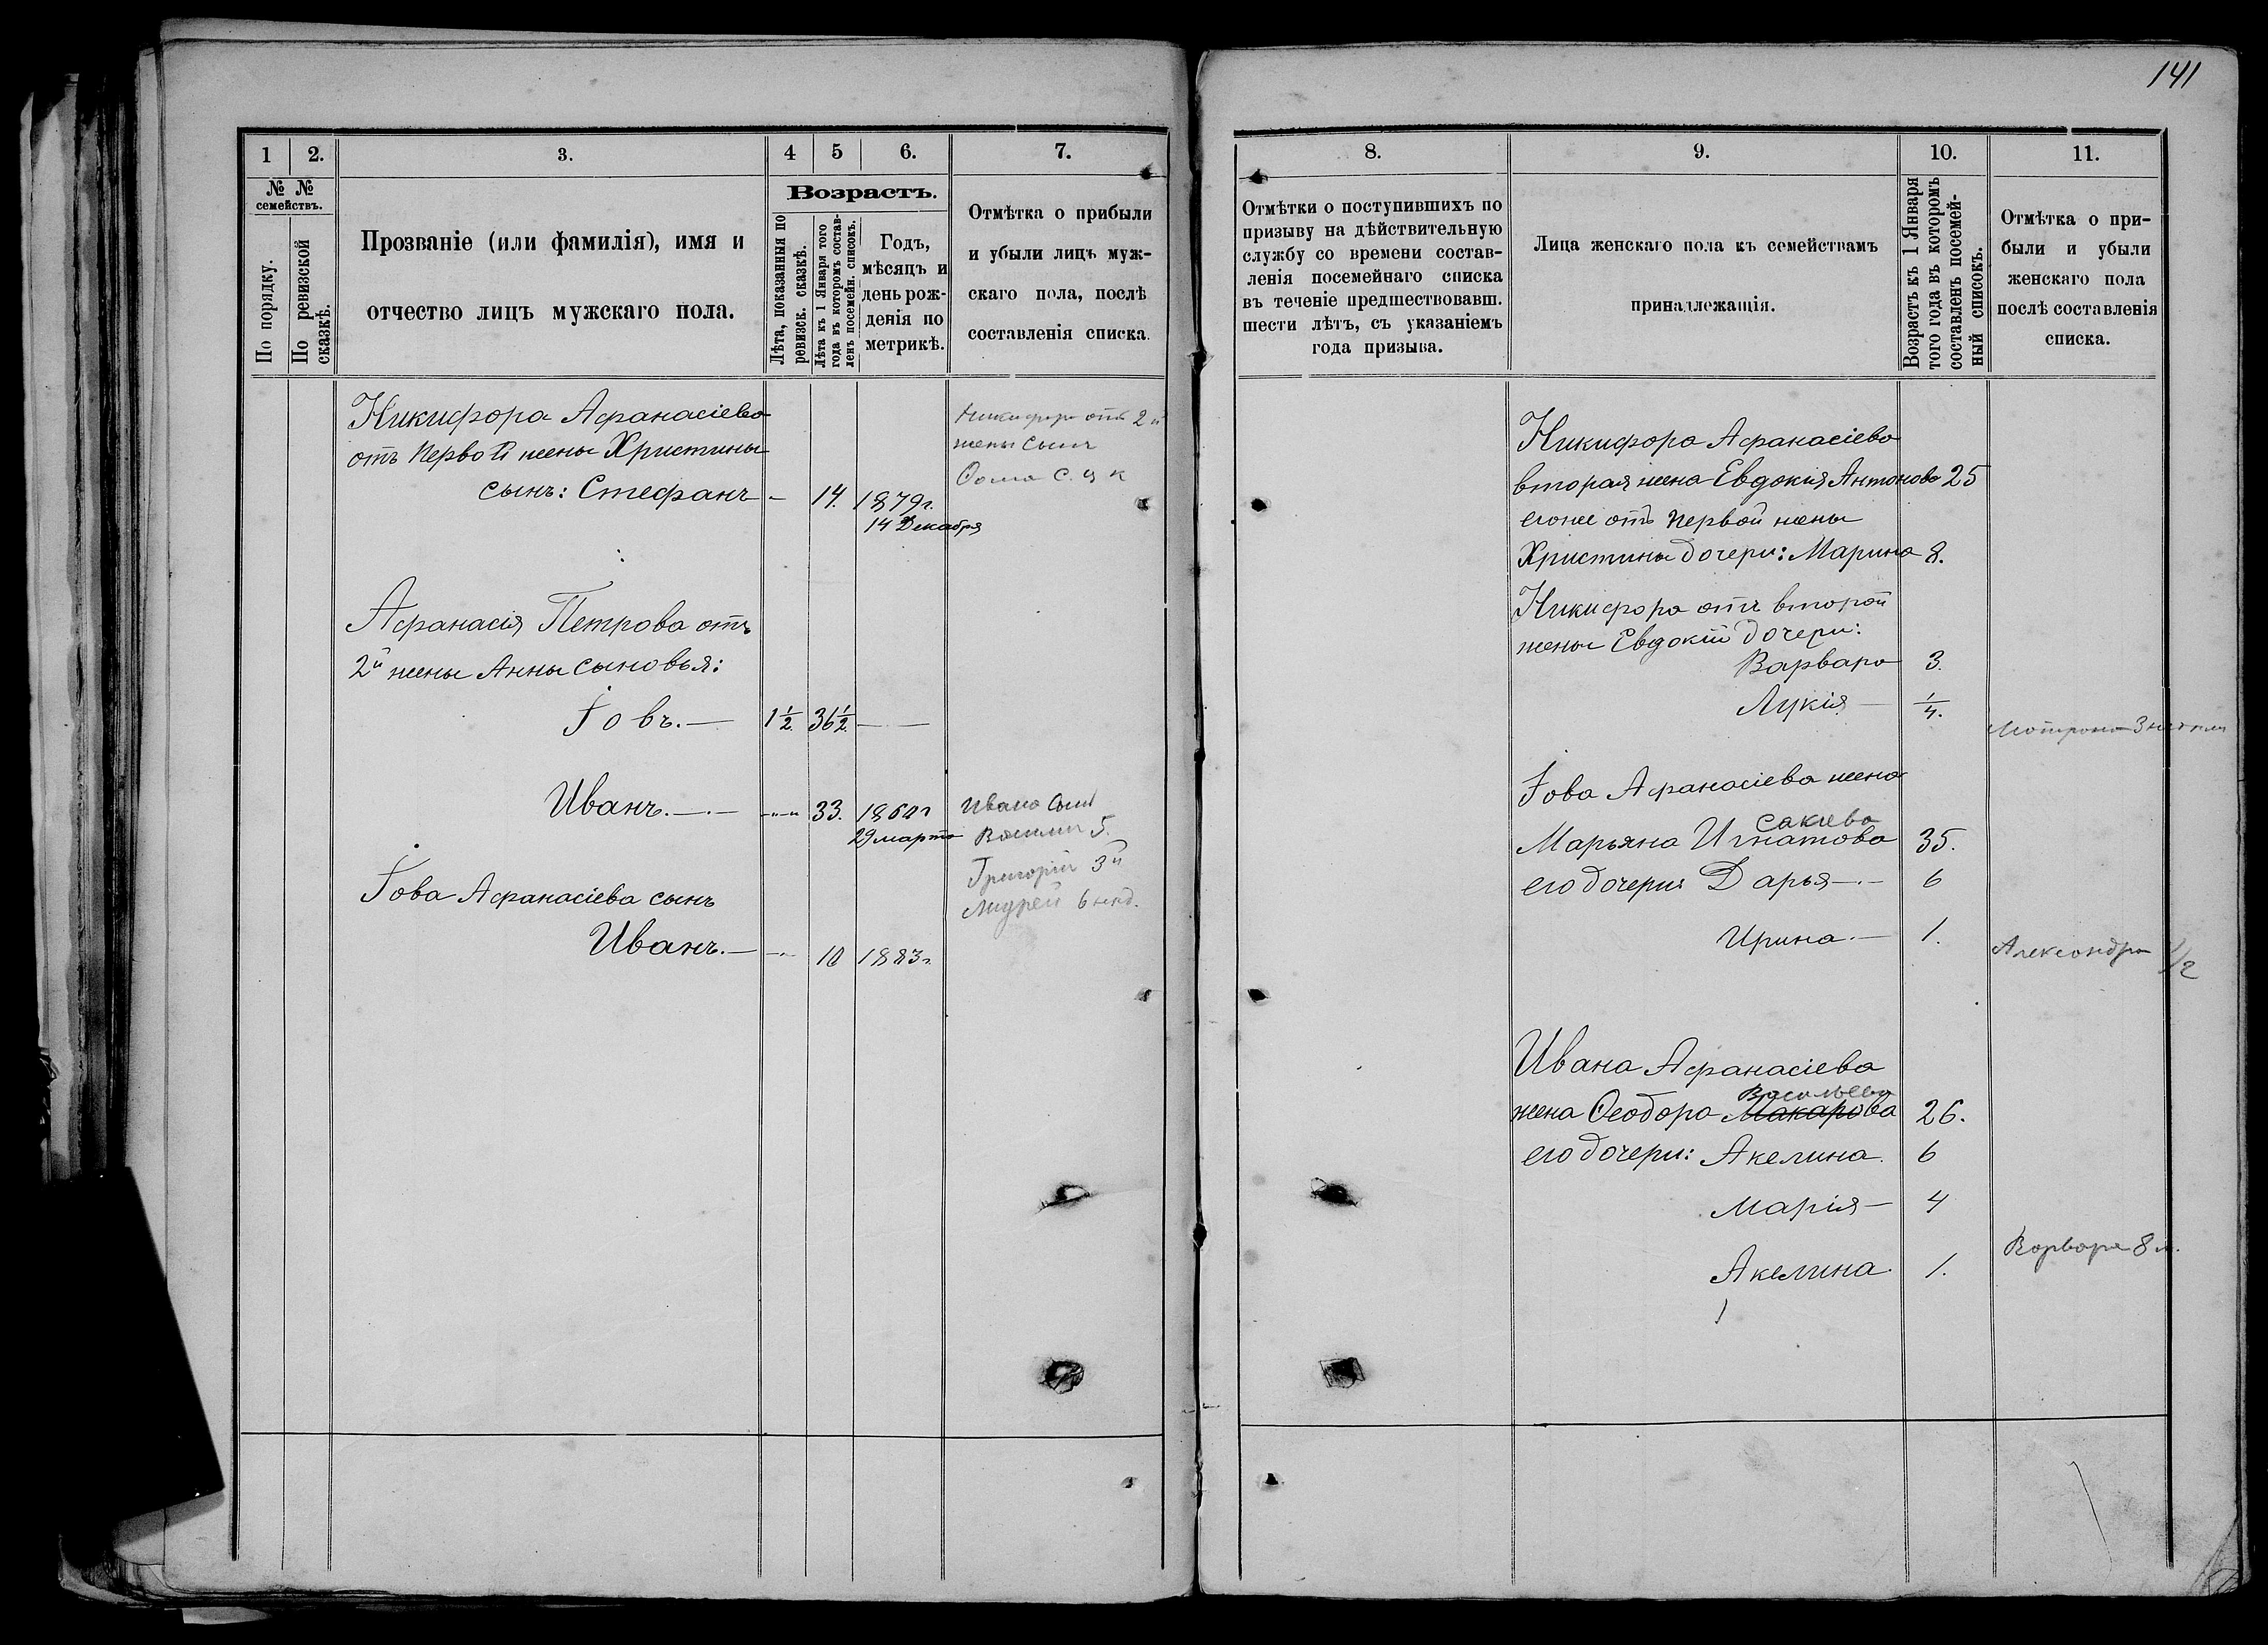 141
1
2.
3.
4
5
6.
7.
№ №
семействъ.
По порядку.
По ревизской
сказкѣ.
Прозваніе (или фамилія), имя и
отчество лицъ мужскаго пола.
Возрастъ.
Лѣта, показанныя по
ревизск. сказкѣ.
Лѣта къ 1 Января того
года въ которомъ состав-
ленъ посемейн. списокъ.
Годъ,
мѣсяцъ и
день рож-
денія по
метрикѣ.
Отмѣтка о прибыли
и убыли лицъ муж-
скаго пола, послѣ
составленія списка.
Никифора Афанасіева
отъ первой жены Христины
сынъ: Стефанъ - 14. 1879г.
14 Декабря
Никифора отъ 2й
жены сынъ
Афанасія Петрова отъ
2й жены Анны сыновья:
Іовъ. — 1½ 36½ — —
Иванъ. — 33. 1860г
29 марта
Ивана сынъ
Василій 5.
Григорій 3й
Андрей 6 нед.
Іова Афанасіева сынъ
Иванъ. — 10 1883г.
8.
9.
10.
11.
Отмѣтки о поступившихъ по
призыву на дѣйствительную
службу со времени состав-
ленія посемейнаго списка
въ теченіе предшествовавш.
шести лѣтъ, съ указаніемъ
года призыва.
Лица женскаго пола къ семействамъ
принадлежащія.
Возрастъ къ 1 Января
того года въ которомъ
составленъ посемей-
ный списокъ.
Отмѣтка о при-
были и убыли
женскаго пола
послѣ составленія
списка.
Никифора Афанасіева
вторая жена Евдокія Антонова 25
егоже отъ первой жены
Христины дочери: Марина 8.
Никифора отъ второй
жены Евдокіи дочери:
Варвара 3.
Лукія — ¼.
Мотрона 3
Іова Афанасіева жена
Сакіева
Марьяна Игнатова 35.
его дочери: Дарья —.— 6
Ирина. — 1.
Александра 1/2
Ивана Афанасіева
Васильева
жена Ѳеодора Макарова 26.
его дочери: Акелина. 6
Марія — 4
Варвара 8 м.
Акелина. 1.